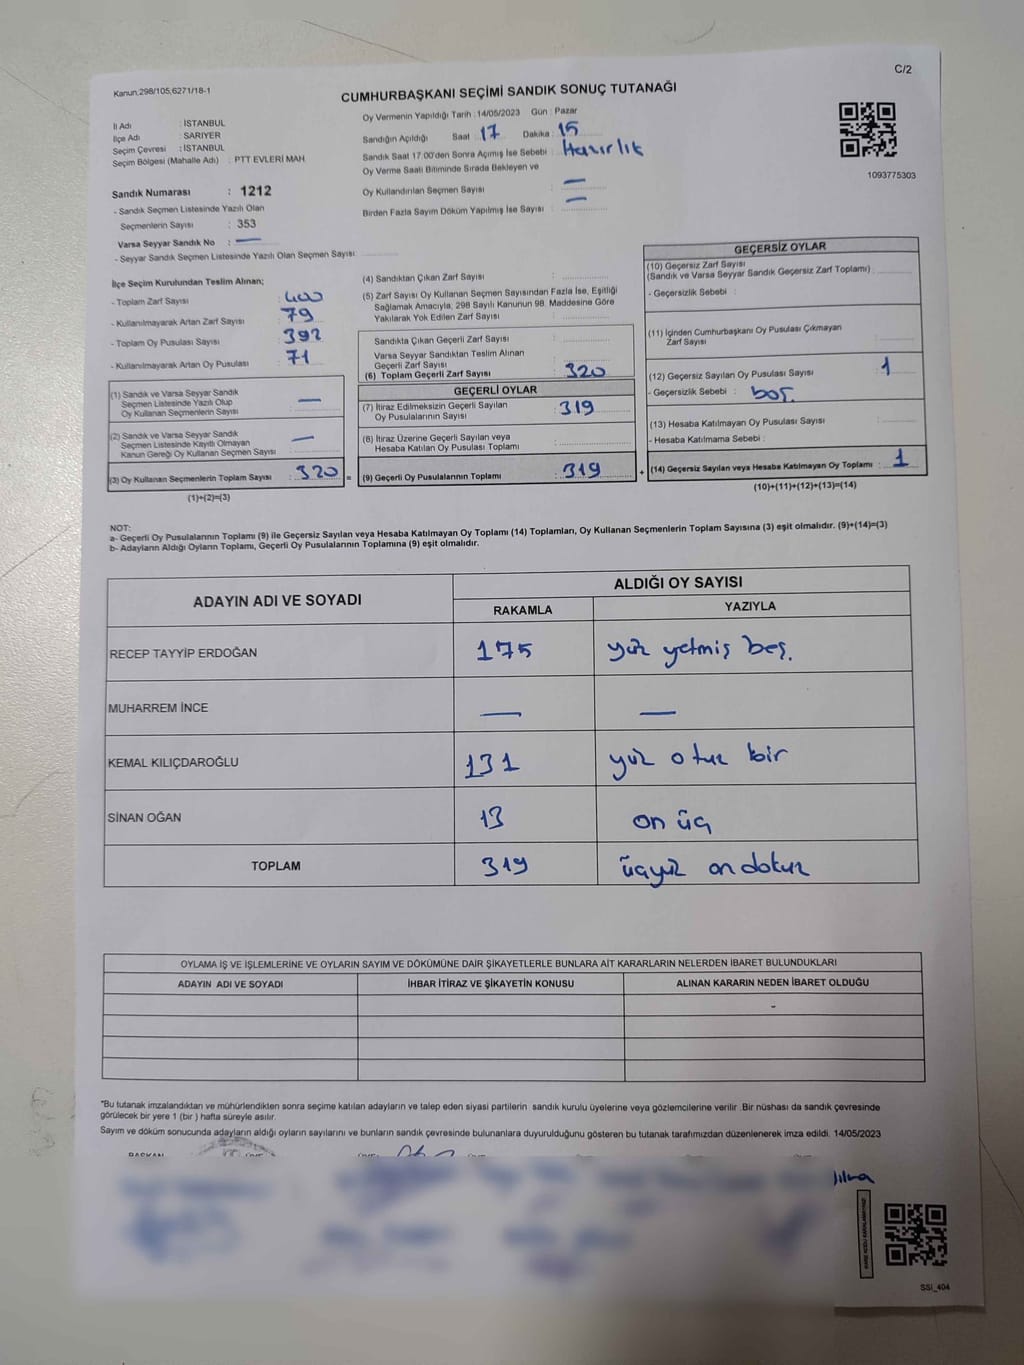 C/2
Kanun,298/105,6271/18-1
CUMHURBAŞKANI SEÇİMİ SANDIK SONUÇ TUTANAĞI
İl Adı : İSTANBUL
İlçe Adı : SARIYER
Seçim Çevresi : İSTANBUL
Seçim Bölgesi (Mahalle Adı) : PTT EVLERİ MAH
Sandık Numarası : 1212
- Sandık Seçmen Listesinde Yazılı Olan
Seçmenlerin Sayısı : 353
Varsa Seyyar Sandık No : —
- Seyyar Sandık Seçmen Listesinde Yazılı Olan Seçmen Sayısı:
Oy Vermenin Yapıldığı Tarih : 14/05/2023 Gün : Pazar
Sandığın Açıldığı Saat : 17 Dakika : 15
Sandık Saat 17:00'den Sonra Açımış İse Sebebi : Hazırlık
Oy Verme Saati Bitiminde Sırada Bekleyen ve
Oy Kullandırılan Seçmen Sayısı : —
Birden Fazla Sayım Döküm Yapılmış İse Sayısı : —
1093775303
İlçe Seçim Kurulundan Teslim Alınan;
- Toplam Zarf Sayısı : 400
- Kullanılmayarak Artan Zarf Sayısı : 79
- Toplam Oy Pusulası Sayısı : 392
- Kullanılmayarak Artan Oy Pusulası : 71
(1) Sandık ve Varsa Seyyar Sandık
Seçmen Listesinde Yazılı Olup
Oy Kullanan Seçmenlerin Sayısı : —
(2) Sandık ve Varsa Seyyar Sandık
Seçmen Listesinde Kayıtlı Olmayan
Kanun Gereği Oy Kullanan Seçmen Sayısı : —
(3) Oy Kullanan Seçmenlerin Toplam Sayısı : 320 =
(1)+(2)=(3)
(4) Sandıktan Çıkan Zarf Sayısı :
(5) Zarf Sayısı Oy Kullanan Seçmen Sayısından Fazla İse, Eşitliği
Sağlamak Amacıyla, 298 Sayılı Kanunun 98. Maddesine Göre
Yakılarak Yok Edilen Zarf Sayısı :
Sandıkta Çıkan Geçerli Zarf Sayısı :
Varsa Seyyar Sandıktan Teslim Alınan
Geçerli Zarf Sayısı :
(6) Toplam Geçerli Zarf Sayısı : 320
GEÇERLİ OYLAR
(7) İtiraz Edilmeksizin Geçerli Sayılan
Oy Pusulalarının Sayısı : 319
(8) İtiraz Üzerine Geçerli Sayılan veya
Hesaba Katılan Oy Pusulası Toplamı :
(9) Geçerli Oy Pusulalarının Toplamı : 319 +
GEÇERSİZ OYLAR
(10) Geçersiz Zarf Sayısı
(Sandık ve Varsa Seyyar Sandık Geçersiz Zarf Toplamı) :
- Geçersizlik Sebebi :
(11) İçinden Cumhurbaşkanı Oy Pusulası Çıkmayan
Zarf Sayısı :
(12) Geçersiz Sayılan Oy Pusulası Sayısı : 1
- Geçersizlik Sebebi : boş.
(13) Hesaba Katılmayan Oy Pusulası Sayısı :
- Hesaba Katılmama Sebebi :
(14) Geçersiz Sayılan veya Hesaba Katılmayan Oy Toplamı : 1
(10)+(11)+(12)+(13)=(14)
NOT:
a- Geçerli Oy Pusulalarının Toplamı (9) ile Geçersiz Sayılan veya Hesaba Katılmayan Oy Toplamı (14) Toplamları, Oy Kullanan Seçmenlerin Toplam Sayısına (3) eşit olmalıdır. (9)+(14)=(3)
b- Adayların Aldığı Oyların Toplamı, Geçerli Oy Pusulalarının Toplamına (9) eşit olmalıdır.
ADAYIN ADI VE SOYADI ALDIĞI OY SAYISI
RAKAMLA YAZIYLA
RECEP TAYYİP ERDOĞAN 175 yüz yetmiş beş.
MUHARREM İNCE — —
KEMAL KILIÇDAROĞLU 131 yüz otuz bir
SİNAN OĞAN 13 on üç
TOPLAM 319 üçyüz ondokuz
OYLAMA İŞ VE İŞLEMLERİNE VE OYLARIN SAYIM VE DÖKÜMÜNE DAİR ŞİKAYETLERLE BUNLARA AİT KARARLARIN NELERDEN İBARET BULUNDUKLARI
ADAYIN ADI VE SOYADI İHBAR İTİRAZ VE ŞİKAYETİN KONUSU ALINAN KARARIN NEDEN İBARET OLDUĞU
-
"Bu tutanak imzalandıktan ve mühürlendikten sonra seçime katılan adayların ve talep eden siyasi partilerin sandık kurulu üyelerine veya gözlemcilerine verilir .Bir nüshası da sandık çevresinde
görülecek bir yere 1 (bir ) hafta süreyle asılır.
Sayım ve döküm sonucunda adayların aldığı oyların sayılarını ve bunların sandık çevresinde bulunanlara duyurulduğunu gösteren bu tutanak tarafımızdan düzenlenerek imza edildi. 14/05/2023
BAŞKAN
SSİ_404